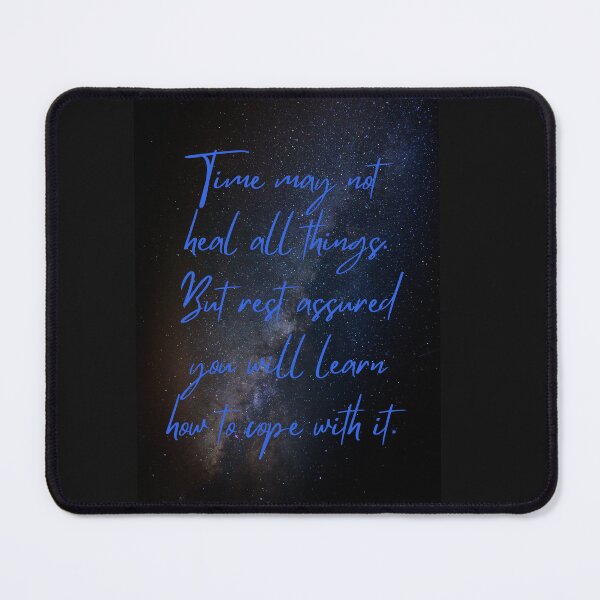 Time may not
heal all things.
But rest assured
you will learn
how to cope with it.